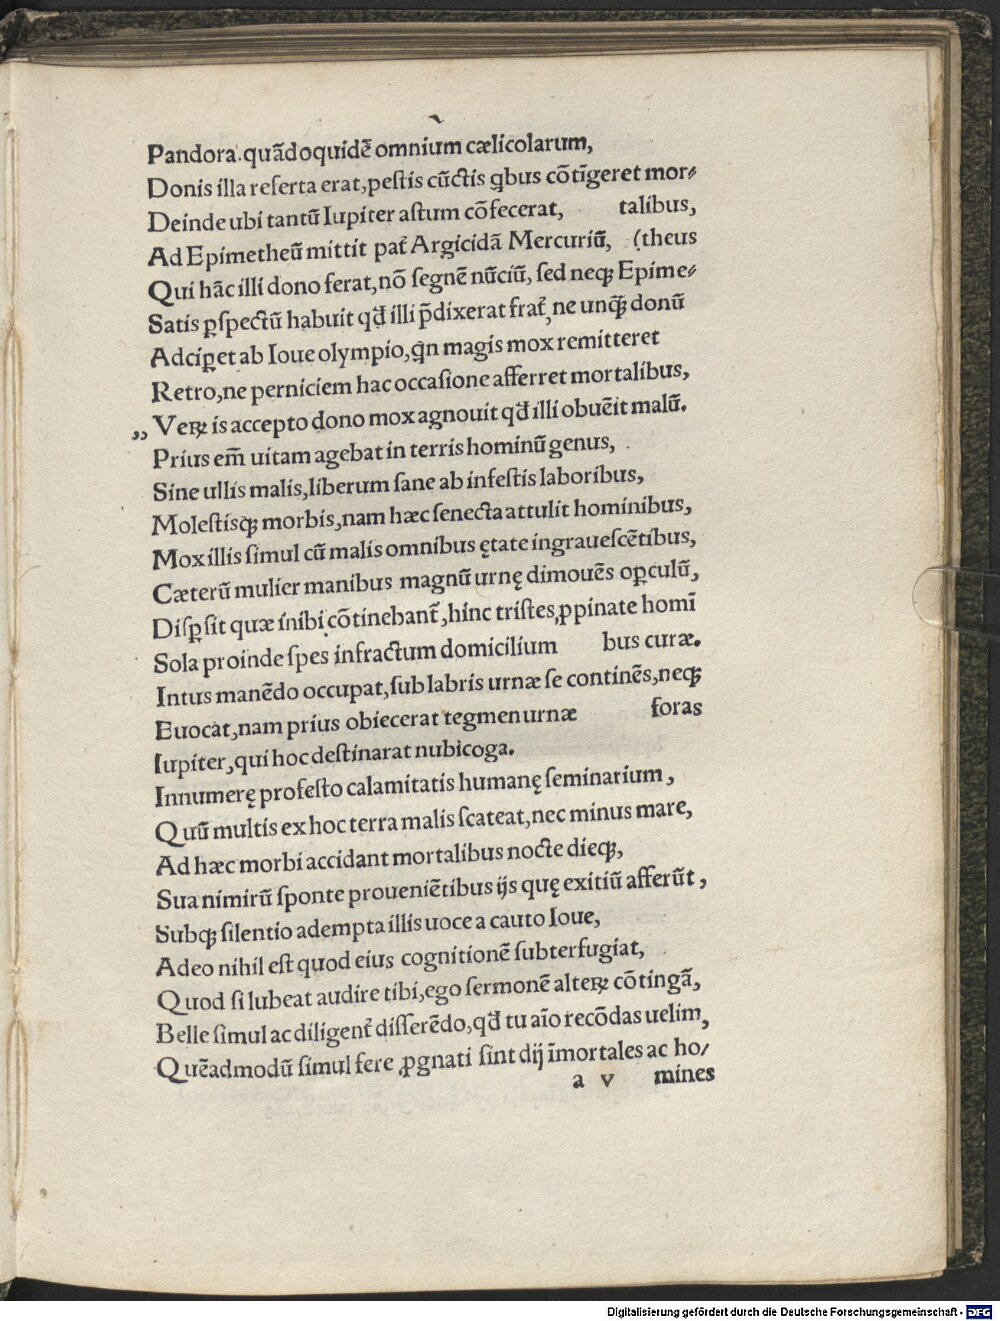 Pandora.quãdoquidẽ omnium cælicolarum,
Donis illa referta erat,peſtis cũctis qbus cõtĩgeret mor⸗
Deinde ubi tantũ Iupiter aſtum cõfecerat, talibus,
Ad Epimetheũ mittit pat̃ Argicidã Mercuriũ, (theus
Qui hãc illi dono ferat,nõ ſegnẽ nũciũ, ſed neqꝫ Epime⸗
Satis ꝑſpectũ habuit qd̃ illi p̃dixerat frat̃, ne unq̃ꝫ donũ
Adciꝑet ab Ioue olympio,qn magis mox remitteret
Retro,ne perniciem hac occaſione afferret mortalibus,
„ Veꝝ is accepto dono mox agnouit qd̃ illi obuẽit malũ.
Prius em̃ uitam agebat in terris hominũ genus,
Sine ullis malis,liberum ſane ab infeſtis laboribus,
Moleſtisq̃ꝫ morbis,nam hæc ſenecta attulit hominibus,
Mox illis ſimul cũ malis omnibus ętate ingraueſcẽtibus,
Cæterũ mulier manibus magnũ urnę dimouẽs oꝑculũ,
Diſꝑſit quæ inibi cõtinebant̃,hinc triſtes,ꝓpinate homĩ
Sola proinde ſpes infractum domicilium bus curæ.
Intus manẽdo occupat,ſub labris urnæ ſe continẽs,neqꝫ
Euocat,nam prius obiecerat tegmen urnæ foras
Iupiter,qui hoc deſtinarat nubicoga.
Innumerę profeſto calamitatis humanę ſeminarium,
Quũ multis ex hoc terra malis ſcateat,nec minus mare,
Ad hæc morbi accidant mortalibus nocte dieqꝫ,
Sua nimirũ ſponte proueniẽtibus ijs quę exitiũ afferũt,
Subqꝫ ſilentio adempta illis uoce a cauto Ioue,
Adeo nihil eſt quod eius cognitionẽ ſubterfugiat,
Quod ſi lubeat audire tibi,ego ſermonẽ alteꝝ cõtingã,
Belle ſimul ac diligent̃ differẽdo,qd̃ tu aĩo recõdas uelim,
Quẽadmodũ ſimul fere ꝓgnati ſint dij ĩmortales ac ho/
a v mines
Digitalisierung gefördert durch die Deutsche Forschungsgemeinschaft - DFG